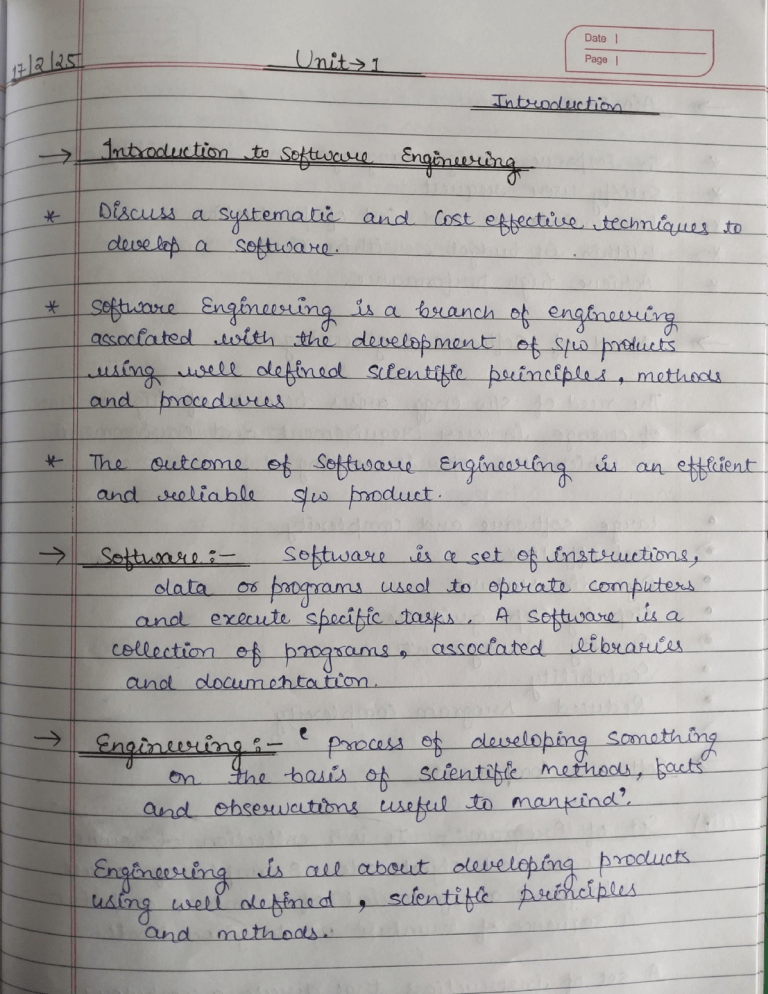 17/2/25
Unit → 1
Date |
Page |
Introduction
→ Introduction to Software Engineering
* Discuss a systematic and Cost effective techniques to
develop a software.
* Software Engineering is a branch of engineering
associated with the development of s/w products
using well defined scientific principles, methods
and procedures
* The outcome of Software Engineering is an efficient
and reliable s/w product.
→ Software :- Software is a set of instructions,
data or programs used to operate computers
and execute specific tasks. A software is a
collection of programs, associated libraries
and documentation.
→ Engineering :- ‘ process of developing something
on the basis of scientific methods, facts
and observations useful to mankind’.
Engineering is all about developing products
using well defined, scientific principles
and methods.